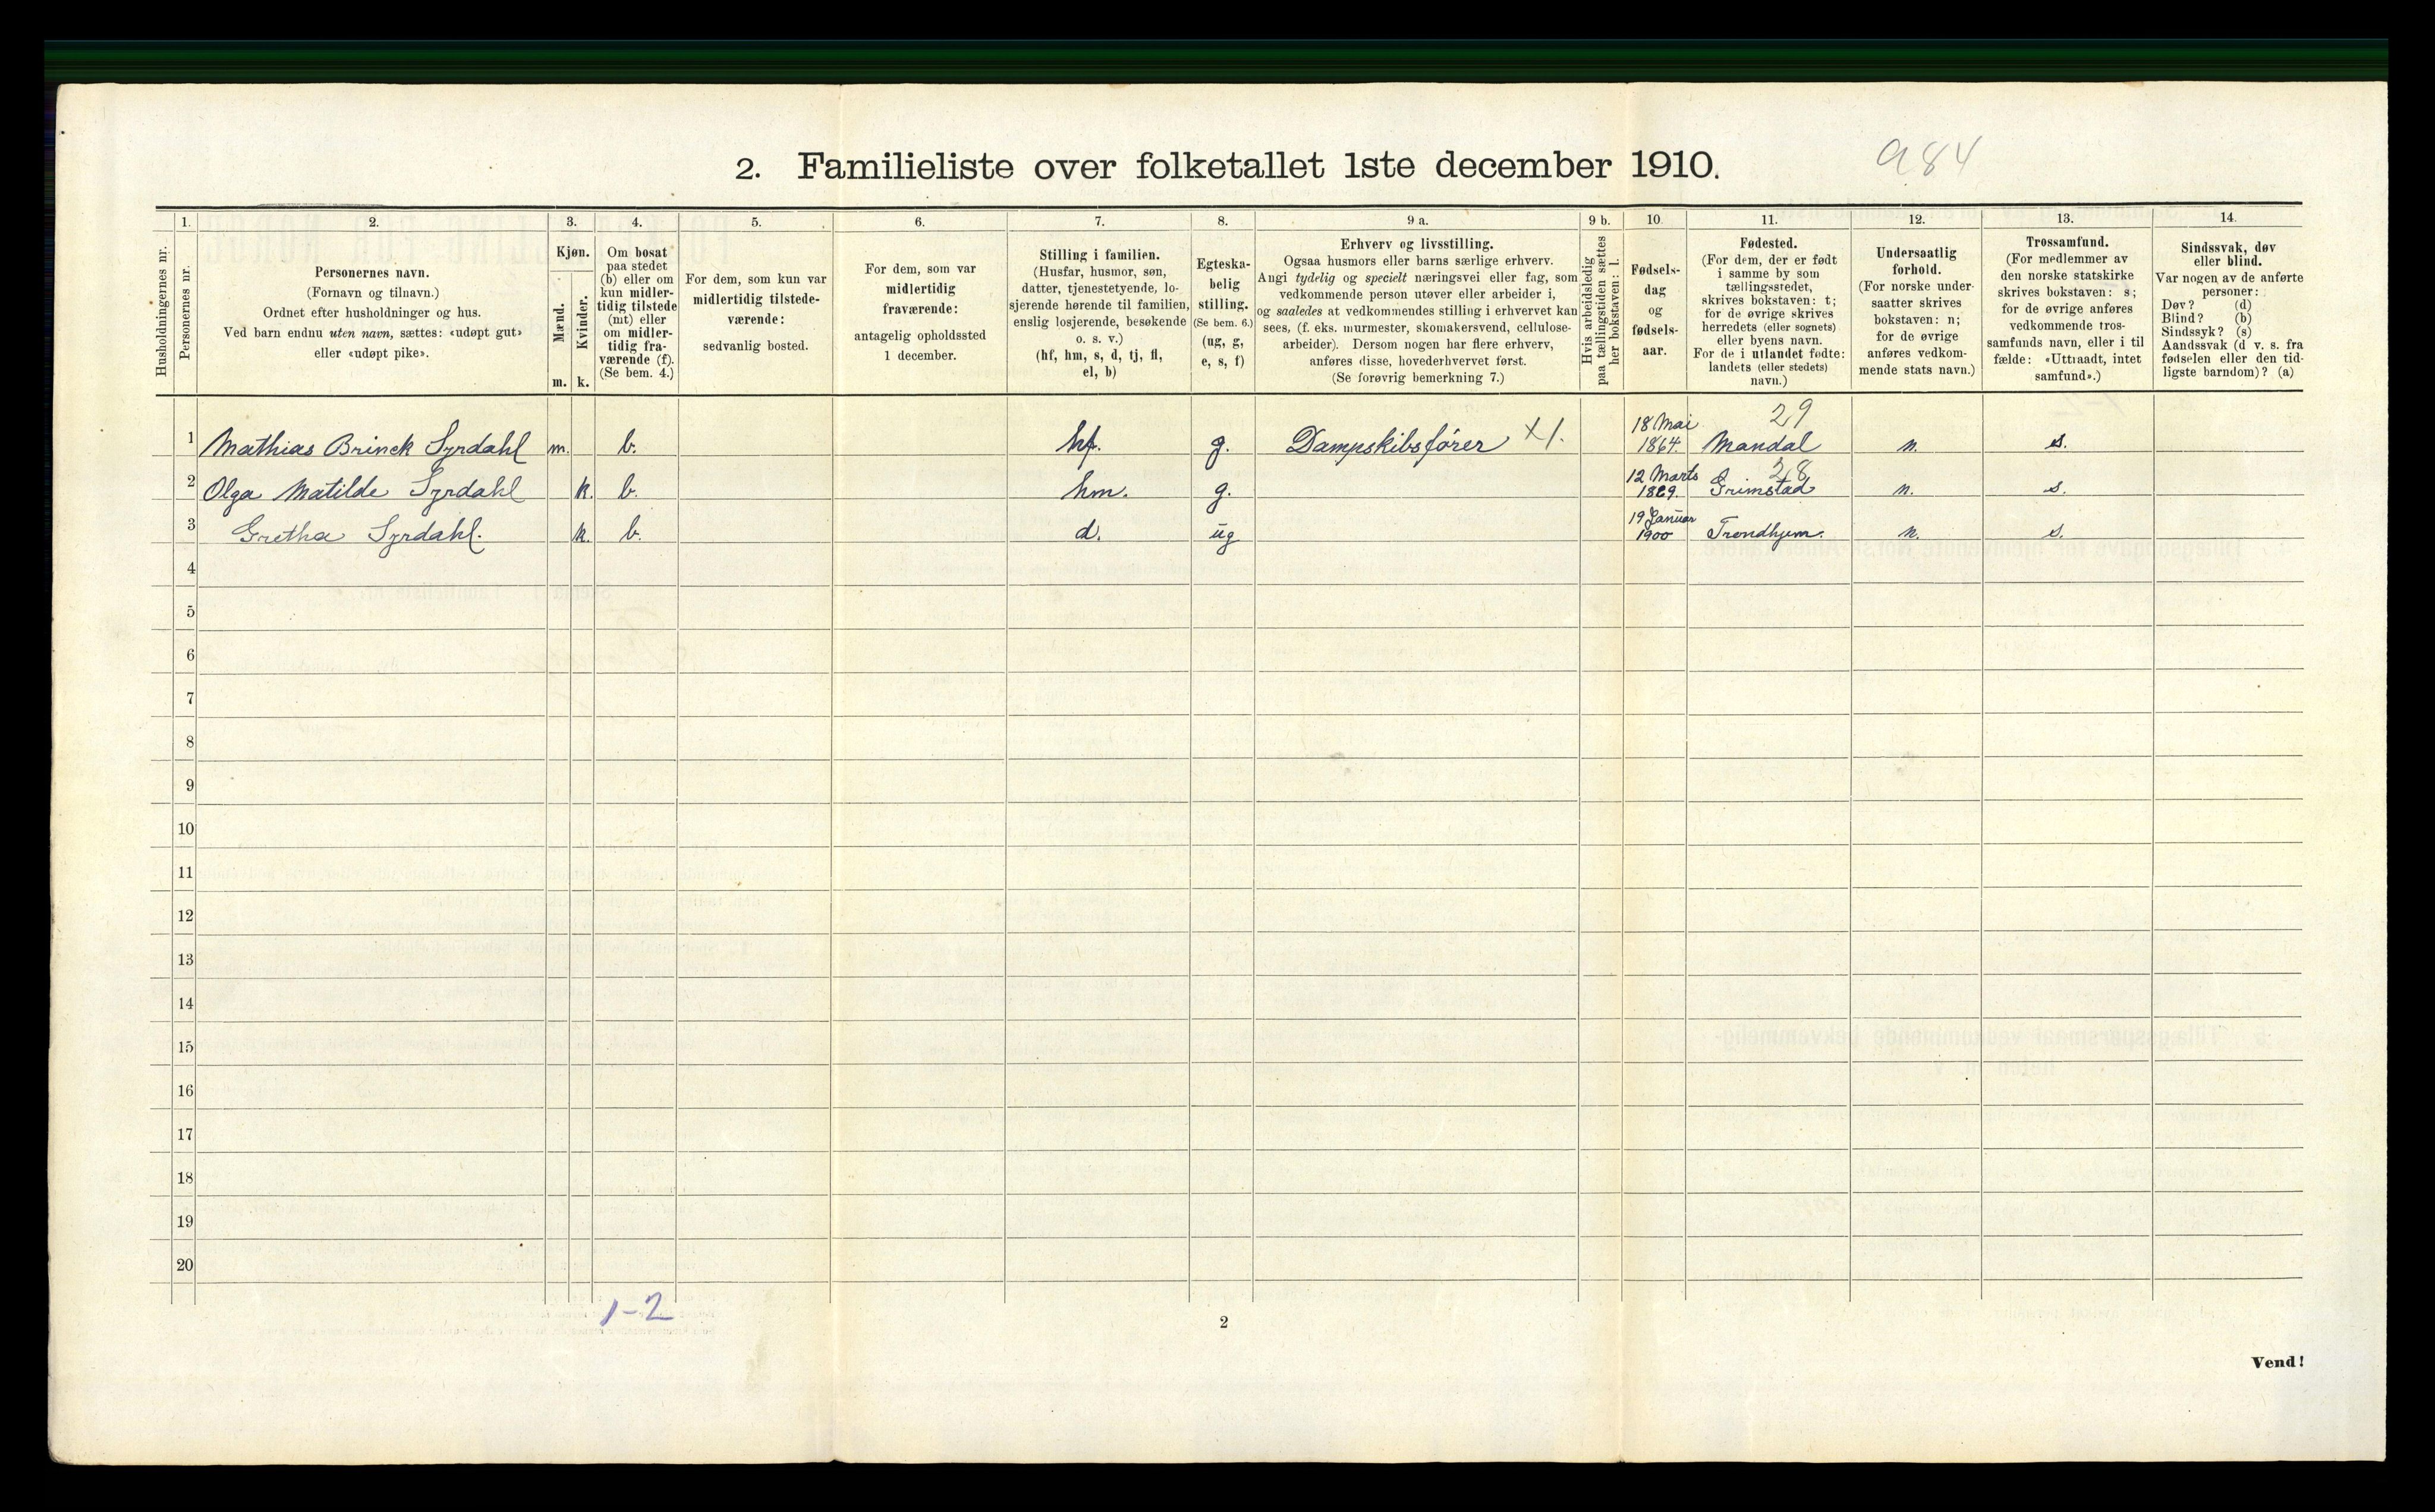 2. Familieliste over folketallet 1ste december 1910.
984
1. 2. 3. 4. 5. 6. 7. 8. 9 a. 9 b. 10. 11. 12. 13. 14.
Husholdningernes nr.
Personernes nr.
Personernes navn.
(Fornavn og tilnavn.)
Ordnet efter husholdninger og hus.
Ved barn endnu uten navn, sættes: «udøpt gut»
eller «udøpt pike».
Kjøn.
Mænd.
Kvinder.
m. k.
Om bosat
paa stedet
(b) eller om
kun midler-
tidig tilstede
(mt) eller
om midler-
tidig fra-
værende (f).
(Se bem. 4.)
For dem, som kun var
midlertidig tilstede-
værende:
sedvanlig bosted.
For dem, som var
midlertidig
fraværende:
antagelig opholdssted
1 december.
Stilling i familien.
(Husfar, husmor, søn,
datter, tjenestetyende, lo-
sjerende hørende til familien,
enslig losjerende, besøkende
o. s. v.)
(hf, hm, s, d, tj, fl,
el, b)
Egteska-
belig
stilling.
(Se bem. 6.)
(ug, g,
e, s, f)
Erhverv og livsstilling.
Ogsaa husmors eller barns særlige erhverv.
Angi tydelig og specielt næringsvei eller fag, som
vedkommende person utøver eller arbeider i,
og saaledes at vedkommendes stilling i erhvervet kan
sees, (f. eks. murmester, skomakersvend, cellulose-
arbeider). Dersom nogen har flere erhverv,
anføres disse, hovederhvervet først.
(Se forøvrig bemerkning 7.)
Hvis arbeidsledig
paa tællingstiden sættes
her bokstaven: l.
Fødsels-
dag
og
fødsels-
aar.
Fødested.
(For dem, der er født
i samme by som
tællingsstedet,
skrives bokstaven: t;
for de øvrige skrives
herredets (eller sognets)
eller byens navn.
For de i utlandet fødte:
landets (eller stedets)
navn.)
Undersaatlig
forhold.
(For norske under-
saatter skrives
bokstaven: n;
for de øvrige
anføres vedkom-
mende stats navn.)
Trossamfund.
(For medlemmer av
den norske statskirke
skrives bokstaven: s;
for de øvrige anføres
vedkommende tros-
samfunds navn, eller i til
fælde: «Uttraadt, intet
samfund».)
Sindssvak, døv
eller blind.
Var nogen av de anførte
personer:
Døv? (d)
Blind? (b)
Sindssyk? (s)
Aandssvak (d v. s. fra
fødselen eller den tid-
ligste barndom)? (a)
18 Mai 29
1 Mathias Brinck Syrdahl m. b. hf. g. Dampskibsfører X1. 1864. Mandal n. s.
12 Marts 28
2 Olga Matilde Syrdahl k. b. hm. g. Grimstad n. s.
19 Januar
3 Gretha Syrdahl. k. b. d. ug 1900 Trondhjem. n. s.
4
5
6
7
8
9
10
11
12
13
14
15
16
17
18
19
20
1-2
2
Vend!